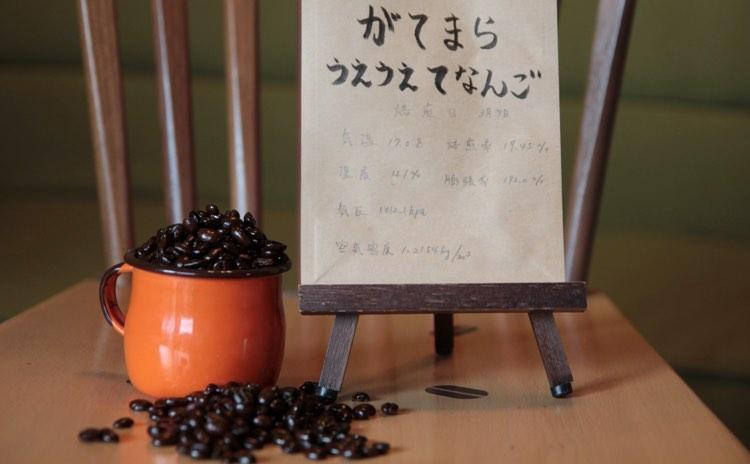 がてまら
うえうえてなんご
焙煎日 3月7日
気温 17.0℃ 焙煎率 19.45%
湿度 41% 膨張率 192.0%
気圧 1012.1hpa
空気密度 1.2154kg/m³